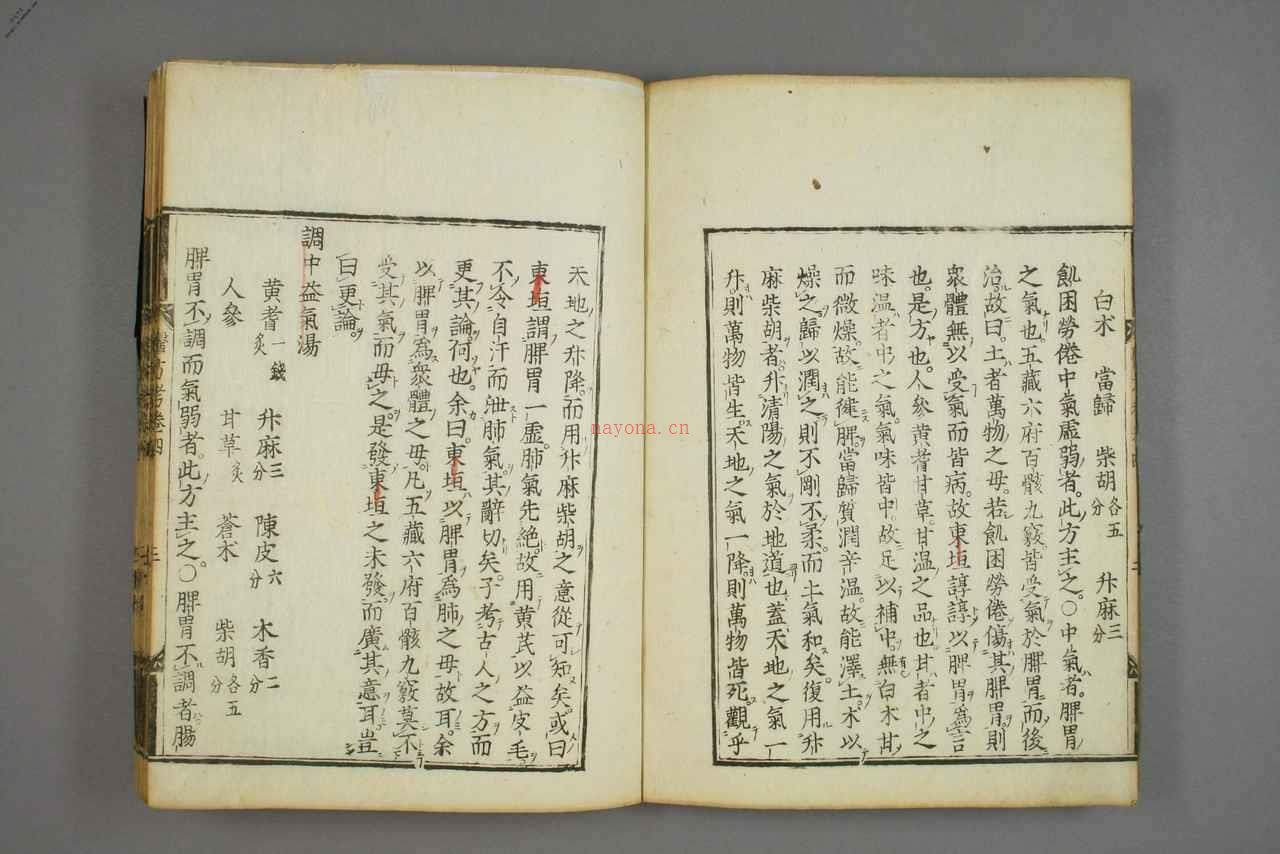 白朮 當歸 柴胡各五分 升麻三分
飢困勞倦中氣虛弱者此方主之○中氣者脾胃
之氣也五藏六府百骸九竅皆受氣於脾胃而後
治故曰土者萬物之母若飢困勞倦傷其脾胃則
衆體無以受氣而皆病故東垣諄諄以脾胃爲言
也是方也人參黄耆甘草甘溫之品也甘者中之
味溫者中之氣氣味皆中故足以補中無白朮甘
而微燥故能健脾當歸質潤辛溫故能澤土朮以
燥之歸以潤之則不剛不柔而土氣和矣復用升
麻柴胡者升清陽之氣於地道也蓋天地之氣一
升則萬物皆生天地之氣一降則萬物皆死觀乎
天地之升降而用升麻柴胡之意從可知矣或曰
東垣謂脾胃一虛肺氣先絶故用黄芪以益皮毛
不令自汗而泄肺氣其辭切矣予考古人之方而
更其論何也余曰東垣以脾胃爲肺之母故耳余
以脾胃爲衆體之母凡五藏六府百骸九竅莫不
受其氣而母之是發東垣之未發而廣其意耳豈
曰更論
調中益氣湯
黄耆一錢炙 升麻三分 陳皮六分 木香二分
人參 甘草炙 蒼朮 柴胡各五分
脾胃不調而氣弱者此方主之○脾胃不調者腸
醫方考卷四
nayona.cn